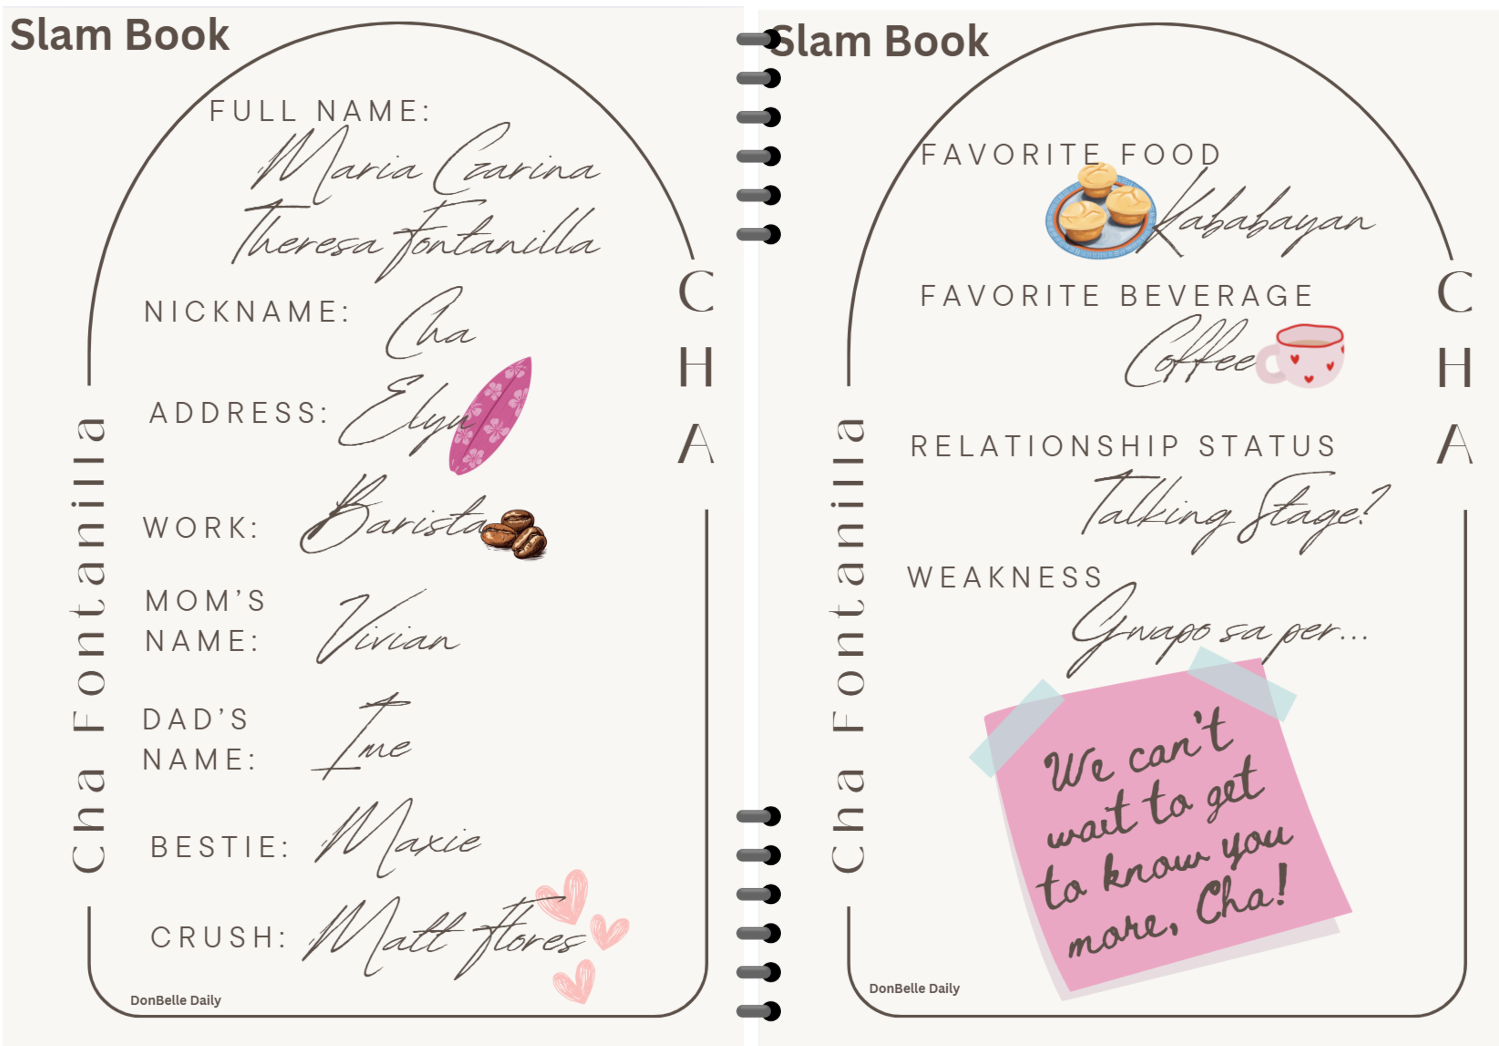 Slam Book
FULL NAME:
Maria Czarina
Theresa Fontanilla
NICKNAME: Cha
ADDRESS: Elyu
WORK: Barista
MOM'S
NAME: Vivian
DAD'S
NAME: Ime
BESTIE: Maxie
CRUSH: Matt Flores
Cha Fontanilla
CHA
DonBelle Daily
Slam Book
FAVORITE FOOD
Kababayan
FAVORITE BEVERAGE
Coffee
RELATIONSHIP STATUS
Talking Stage?
WEAKNESS
Gwapo sa per...
We can't
wait to get
to know you
more, Cha!
Cha Fontanilla
CHA
DonBelle Daily